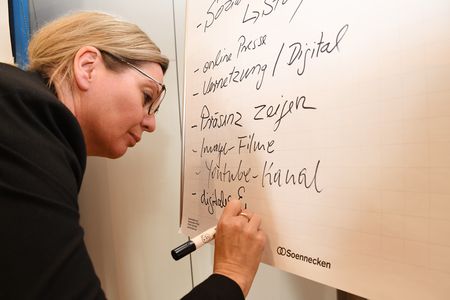 - Social
↳ Story
- online Presse
- Vernetzung / Digital
- Präsenz zeigen
- Image-Filme
- Youtube-Kanal
- digitales
Soennecken